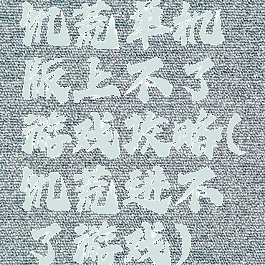 饥荒单机
版上不了
游戏攻略(
饥荒进不
了游戏)